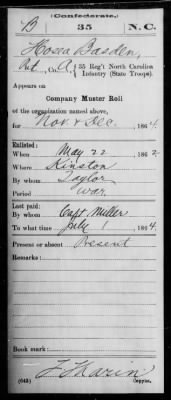 (Confederate.)
B 35 N.C.
Hosea Basden,
Pvt, Co. A, 35 Reg't North Carolina
Infantry (State Troops).
Appears on
Company Muster Roll
of the organization named above,
for Nov & Dec, 1864.
Enlisted:
When May 22, 1862.
Where Kinston
By whom Taylor
Period War
Last paid:
By whom Capt Miller
To what time July 1, 1864.
Present or absent Present
Remarks:
Book mark:
(642) Copyist.